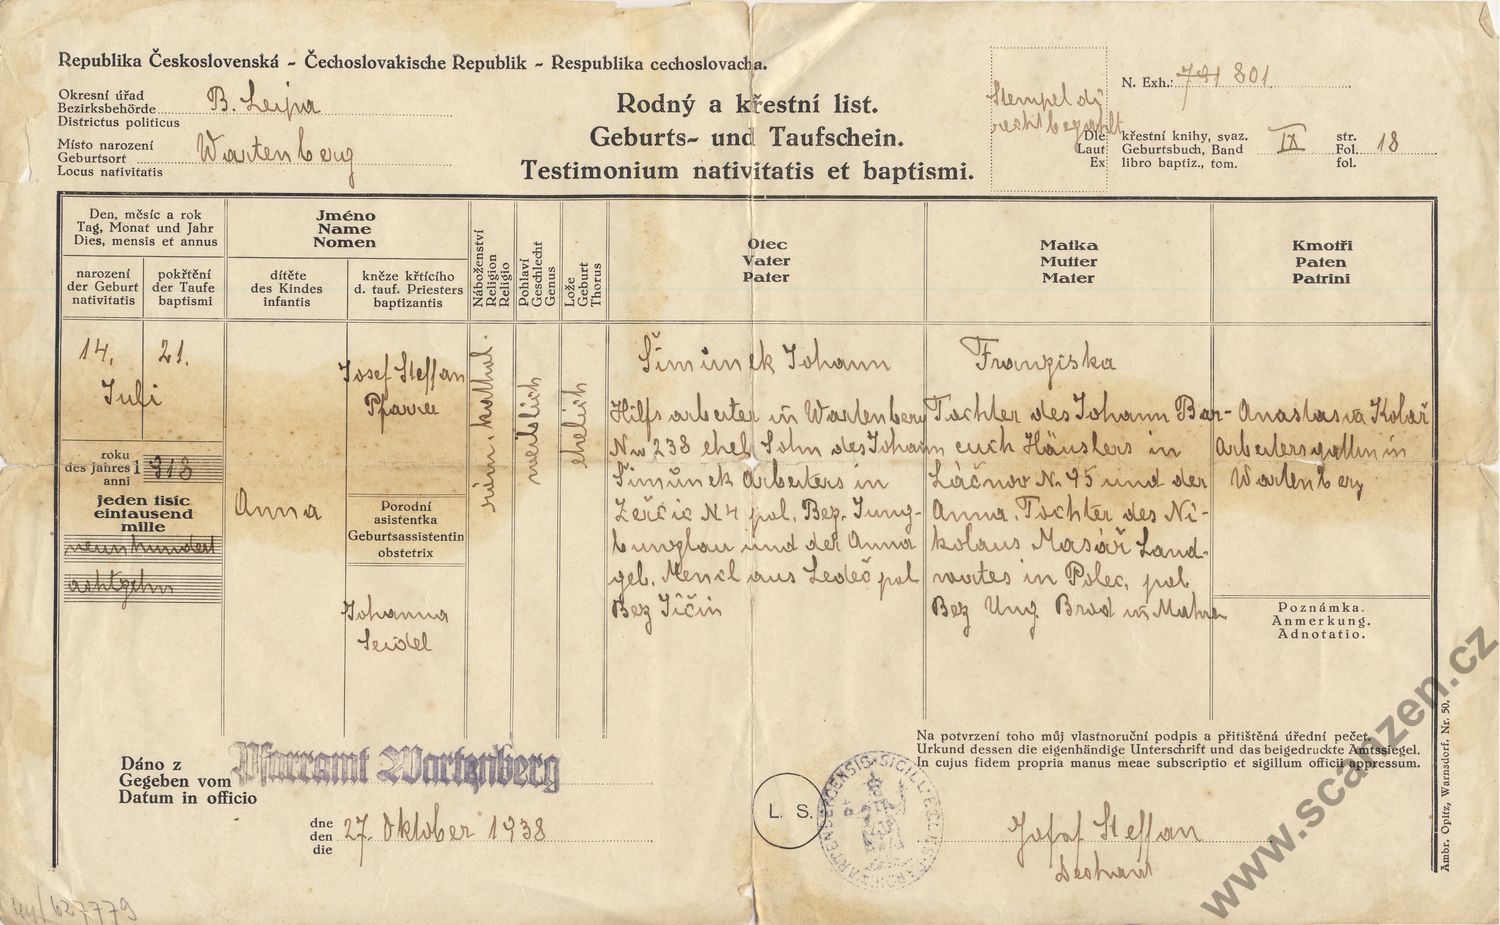 Republika Československá - Čechoslovakische Republik - Respublika cechoslovacha.
Okresní úřad
Bezirksbehörde B. Leipa
Districtus politicus
Místo narození
Geburtsort Wartenberg
Locus nativitatis
Rodný a křestní list.
Geburts- und Taufschein.
Testimonium nativitatis et baptismi.
Stempel
recht bezahlt
N. Exh.: 791 801
Dle křestní knihy, svaz. str.
Laut Geburtsbuch, Band IX Fol. 18
Ex libro baptiz., tom. fol.
Den, měsíc a rok
Tag, Monat und Jahr
Dies, mensis et annus
narození
der Geburt
nativitatis
pokřtění
der Taufe
baptismi
Jméno
Name
Nomen
dítěte
des Kindes
infantis
kněze křtícího
d. tauf. Priesters
baptizantis
Náboženství
Religion
Religio
Pohlaví
Geschlecht
Genus
Lože
Geburt
Thorus
Otec
Vater
Pater
Matka
Mutter
Mater
Kmotři
Paten
Patrini
14. 21.
Juli
roku
des Jahres 1 918
anni
jeden tisíc
eintausend
mille
neunhundert
achtzehn
Anna
Josef Steffan
Pfarrer
Porodní
asistentka
Geburtsassistentin
obstetrix
Johanna
Seidel
röm. kathol.
weiblich
ehelich
Šimůnek Johann
Hilfsarbeiter in Wartenberg
Nro 238 ehel. Sohn des Johann
Šimůnek Arbeiters in
Žerčic N 4 pol. Bez. Jung-
bunzlau und der Anna
geb. Mencl aus Ledeč pol
Bez Jičin
Franziska
Tochter des Johann Bar-
Häuslers in
Láčnov N. 45 und der
Anna, Tochter des Ni-
kolaus Masář Land-
wirtes in Polec, pol
Bez Ung. Brod in Mähren
Anastasia Kolář
Arbeitersgattin in
Wartenberg
Poznámka.
Anmerkung.
Adnotatio.
Dáno z
Gegeben vom
Datum in officio
Pfarramt Wartenberg
dne
den 27. Oktober 1938
die
L. S.
Na potvrzení toho můj vlastnoruční podpis a přitištěná úřední pečeť.
Urkund dessen die eigenhändige Unterschrift und das beigedruckte Amtssiegel.
In cujus fidem propria manus meae subscriptio et sigillum officii appressum.
Josef Steffan
Dechant
Ambr. Opitz, Warnsdorf. Nr. 50.
www.scanzen.cz
627779